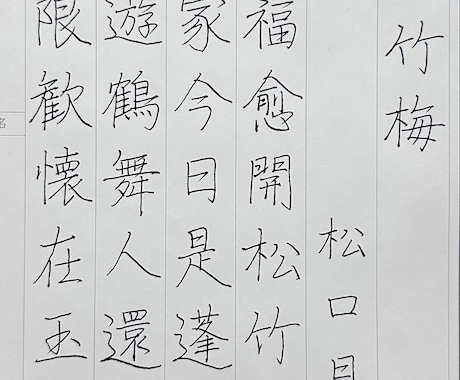 竹梅
松口月
福愈開松竹
家今日是蓬
遊鶴舞人還
限歓懐在玉
名